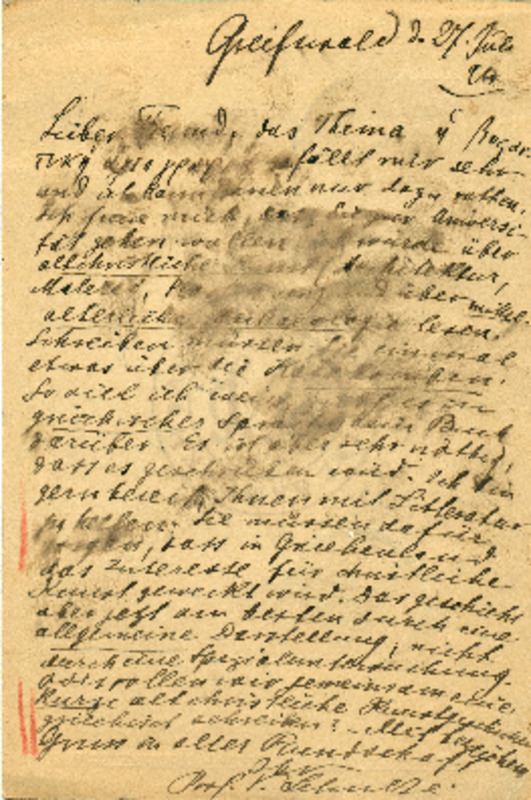 Greifswald d. 27. Juli
Lieber Freund, das Thema
fällt mir sehr
und ich kann Ihnen nur dazu rathen.
Ich freue mich, dass Sie zur Universi-
tät gehen wollen. Ich würde über
altchristliche Kunst (Architektur,
Malerei, und über mittel-
alterliche lesen.
Schreiben müssen Sie einmal
etwas über die Katakomben.
So viel ich weiss in
griechischer Sprache kein Buch
darüber. Es ist aber sehr nöthig,
dass es geschrieben wird. Ich bin
gern bereit, Ihnen mit Litteratur
zu helfen. Sie müssen dafür
sorgen, dass in Griechenland
das Interesse für christliche
Kunst geweckt wird. Das geschieht
aber jetzt am besten durch eine
allgemeine Darstellung, nicht
durch eine Spezialuntersuchung.
Oder wollen wir gemeinsam eine
kurze altchristliche Kunstgeschichte
griechisch schreiben? – Mit
Gruss in alter Freundschaft
Ihr
Prof. V. Schultze.